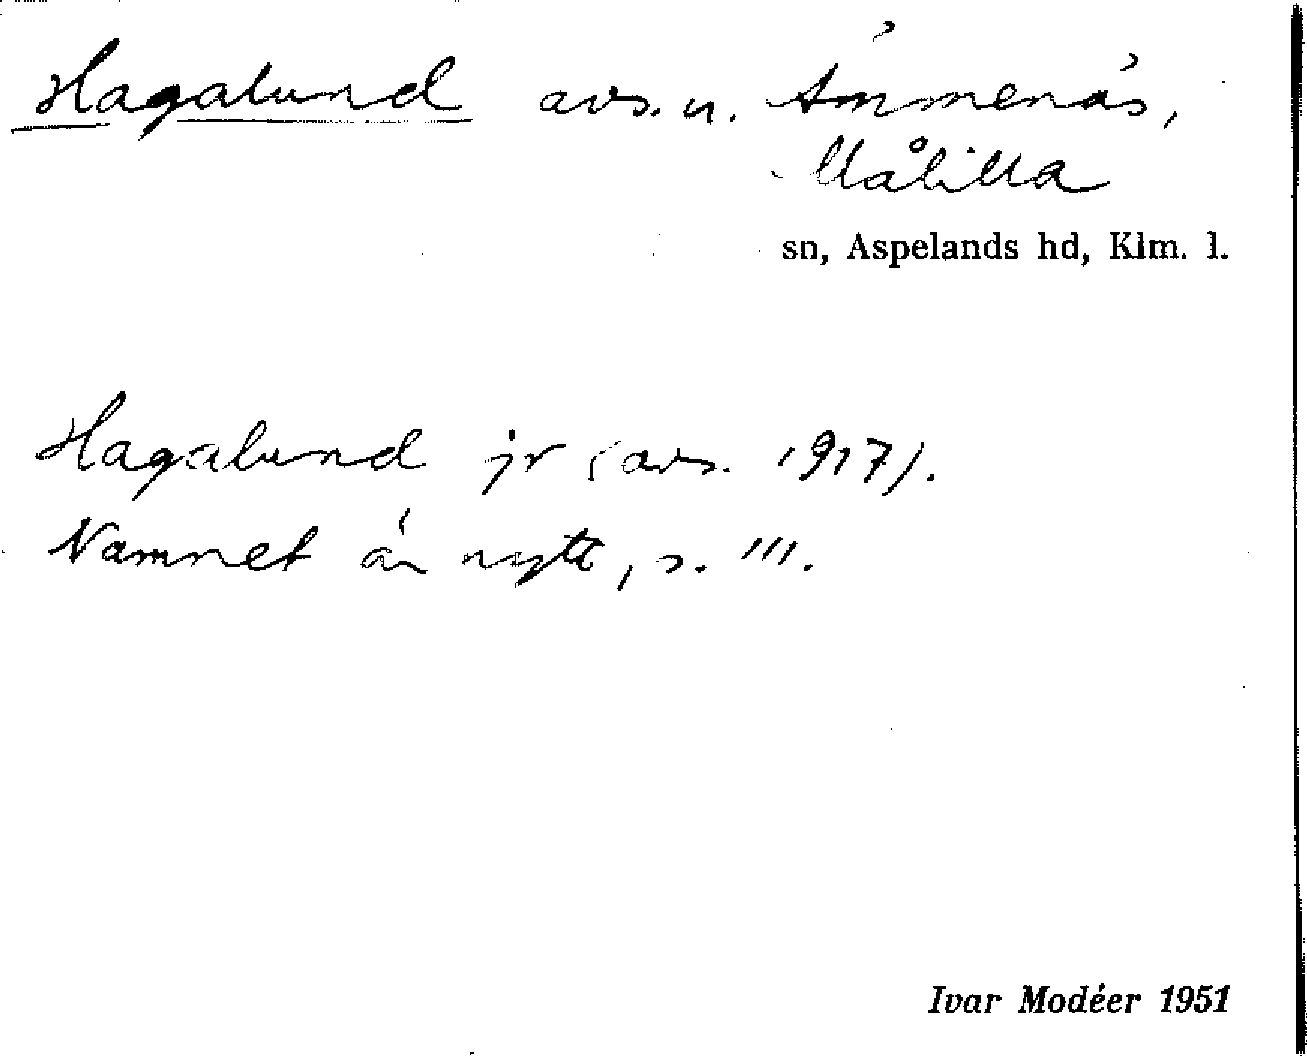 Hagalund avs. u. Ämmenäs,
Målilla
sn, Aspelands hd, Klm. l.
Hagalund jr (avs. 1917).
Namnet är nytt, s. 111.
Ivar Modéer 1951